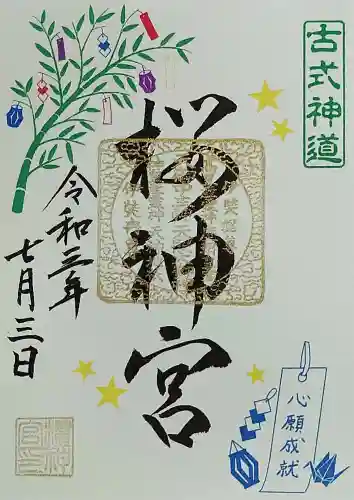 古式神道
桜神宮
令和三年
七月三日
心願成就